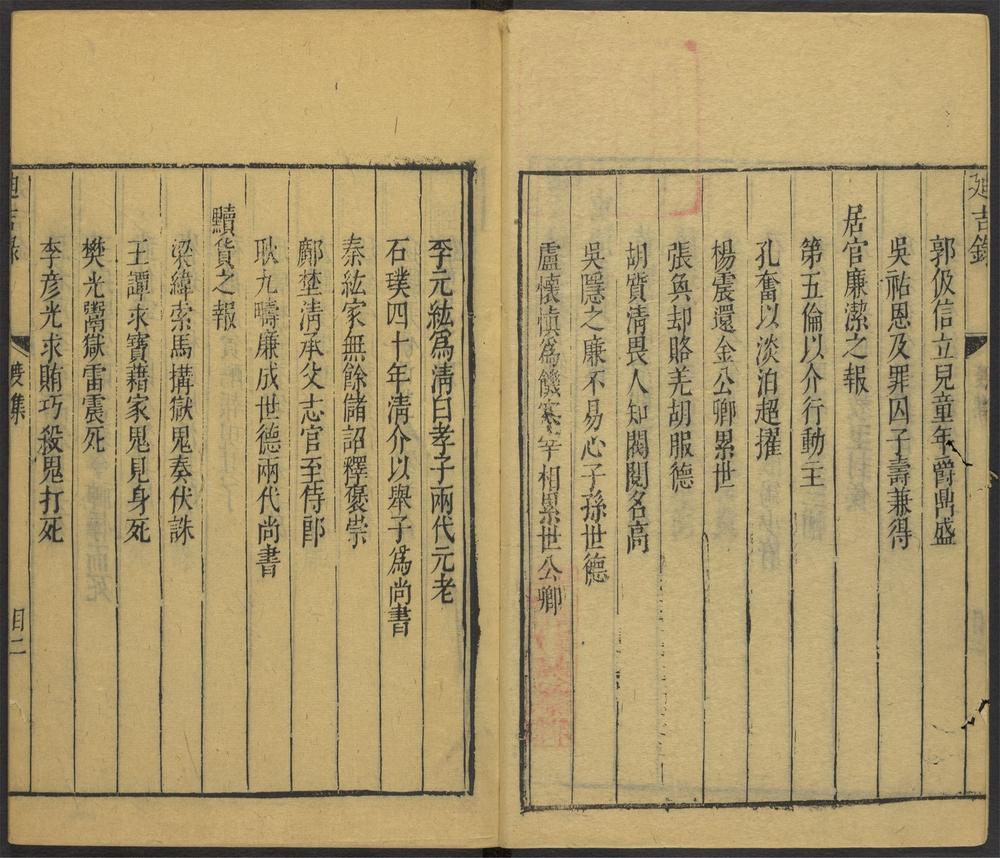 迪吉錄
郭伋信立兒童年爵鼎盛
吳祐恩及罪囚子壽兼得
居官廉潔之報
第五倫以介行動主
孔奮以淡泊超擢
楊震還金公卿累世
張奐却賂羌胡服德
胡質清畏人知閥閱名高
吳隱之廉不易心子孫世德
盧懷慎為饑寒宰相累世公卿
李元紘為清白孝子兩代元老
石璞四十年清介以舉子為尚書
秦紘家無餘儲詔釋褒崇
鄺埜清承父志官至侍郎
耿九疇廉成世德兩代尚書
黷貨之報
梁緯索馬搆獄鬼奏伏誅
王譚求寶藉家鬼見身死
樊光鬻獄雷震死
李彥光求賄巧殺鬼打死
迪吉錄
度集
目二